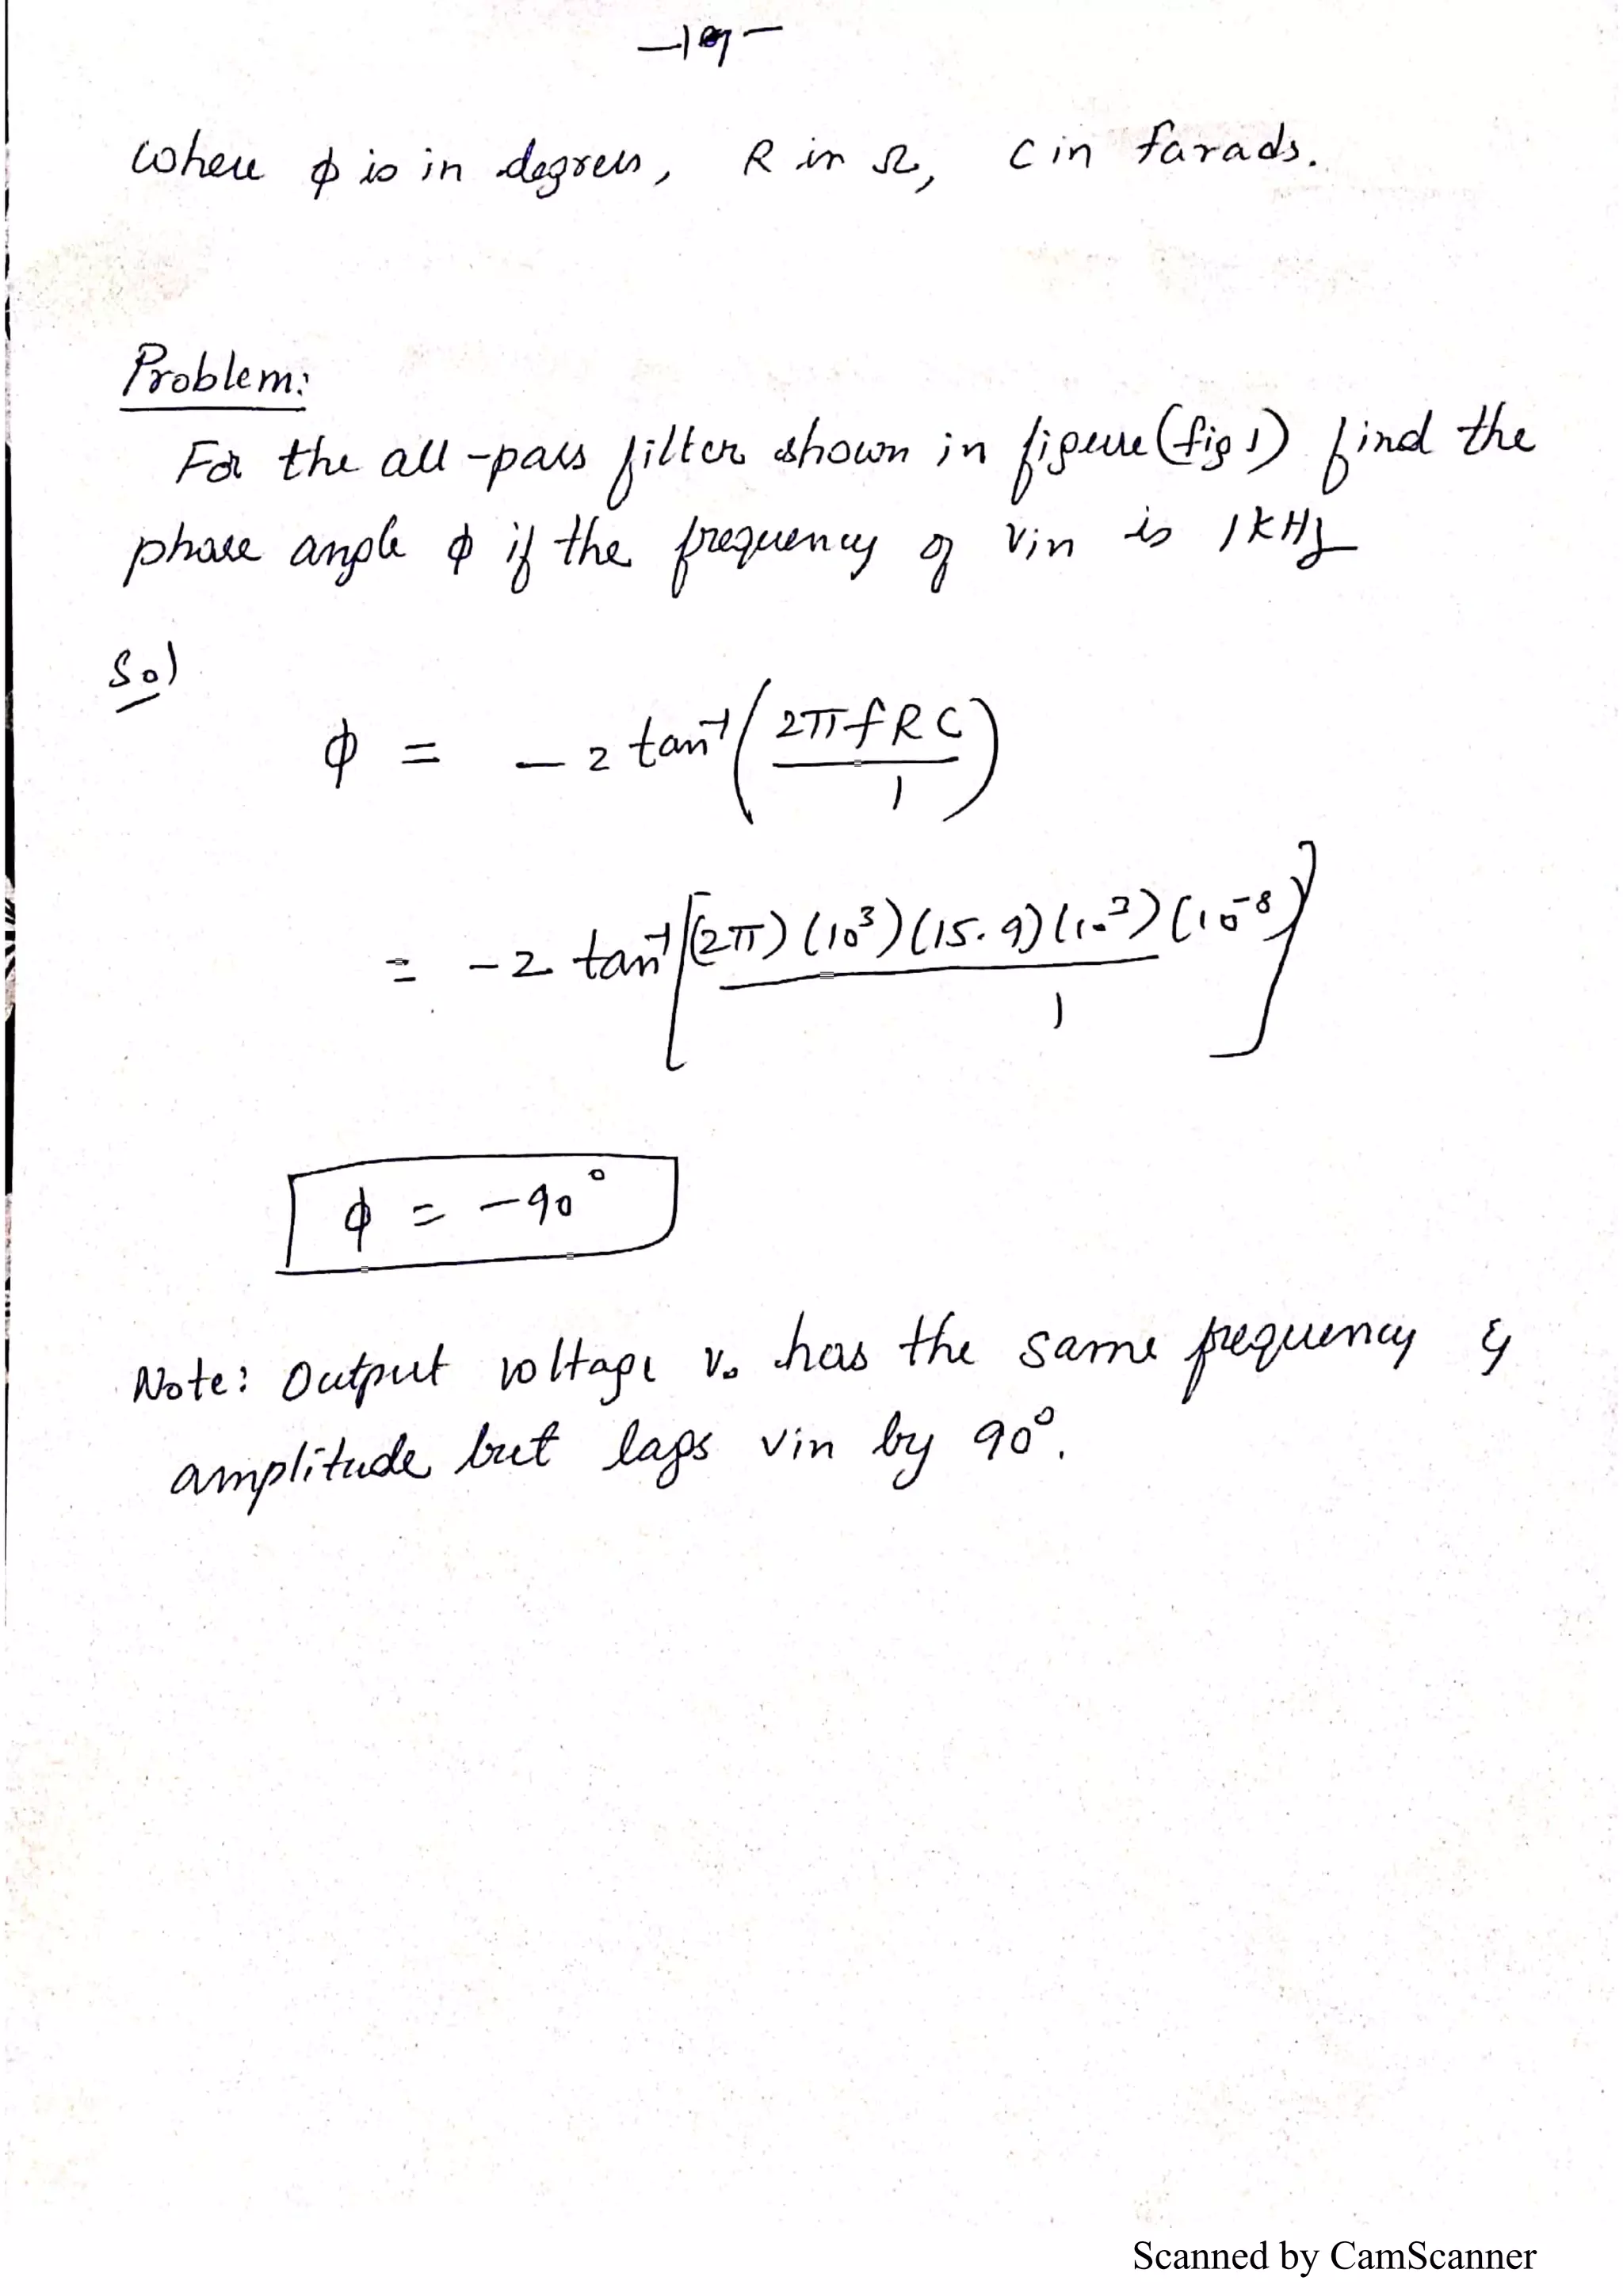 where φ is in degrees, R in Ω, C in farads.
Problem:
For the all-pass filter shown in figure (fig 1) find the
phase angle φ if the frequency of Vin is 1 KHz
Sol
φ = - 2 tan⁻¹ ( 2πfRC / 1 )
= - 2 tan⁻¹ [ (2π) (10³) (15.9) (10³) (10⁻⁸) / 1 ]
φ = -90°
Note: Output voltage Vo has the same frequency &
amplitude but lags Vin by 90°.
Scanned by CamScanner